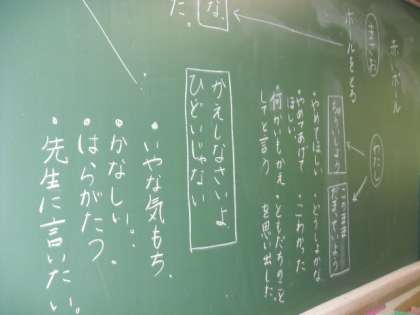 赤いボール
まさお
ボールをとる
な、
た。
わたし
ちゅういしよう
このまま
だまっていよう
・やめてほしい
・やめてあげて
ほしい
・何かいもかえ
してと言う
どうしよかな
こわかった
ともだちのこと
を思い出した
かえしなさいよ
ひどいじゃない
・いやな気もち.
・かなしい。
・はらがたつ.
・先生に言いたい。